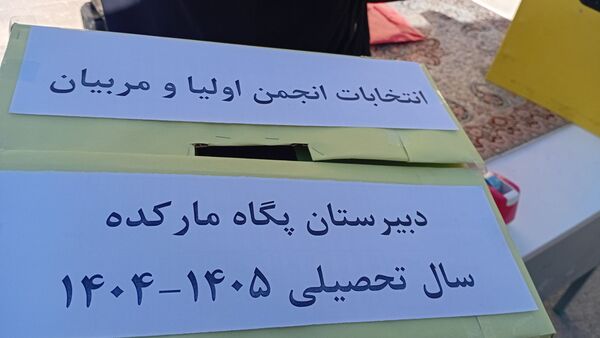 انتخابات انجمن اولیا و مربیان
دبیرستان پگاه مارکده
سال تحصیلی ۱۴۰۵-۱۴۰۴